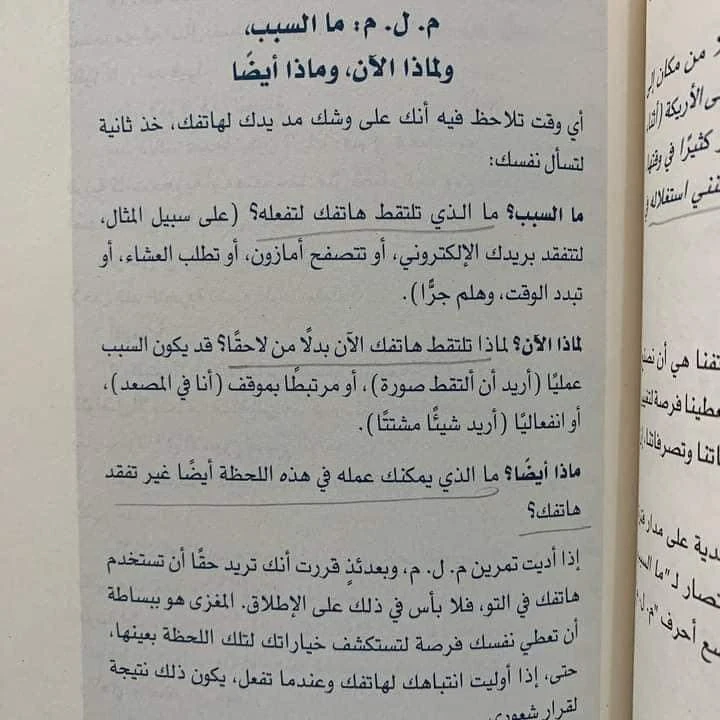 م. ل. م: ما السبب،
ولماذا الآن، وماذا أيضًا
أي وقت تلاحظ فيه أنك على وشك مد يدك لهاتفك، خذ ثانية
لتسأل نفسك:
ما السبب؟ ما الذي تلتقط هاتفك لتفعله؟ (على سبيل المثال،
لتتفقد بريدك الإلكتروني، أو تتصفح أمازون، أو تطلب العشاء، أو
تبدد الوقت، وهلم جرًّا).
لماذا الآن؟ لماذا تلتقط هاتفك الآن بدلًا من لاحقًا؟ قد يكون السبب
عمليًا (أريد أن ألتقط صورة)، أو مرتبطًا بموقف (أنا في المصعد)،
أو انفعاليًا (أريد شيئًا مشتتًا).
ماذا أيضًا؟ ما الذي يمكنك عمله في هذه اللحظة أيضًا غير تفقد
هاتفك؟
إذا أديت تمرين م. ل. م، وبعدئذٍ قررت أنك تريد حقًا أن تستخدم
هاتفك في التو، فلا بأس في ذلك على الإطلاق. المغزى هو ببساطة
أن تعطي نفسك فرصة لتستكشف خياراتك لتلك اللحظة بعينها،
حتى، إذا أوليت انتباهك لهاتفك وعندما تفعل، يكون ذلك نتيجة
لقرار شعوري.
من مكان إلى
الأريكة
كثيرًا في وقتها
استغلاله في
هي أن
فرصة
وتصرفاتنا،
على مدار
لـ "ما السبب
أحرف "م. ل.